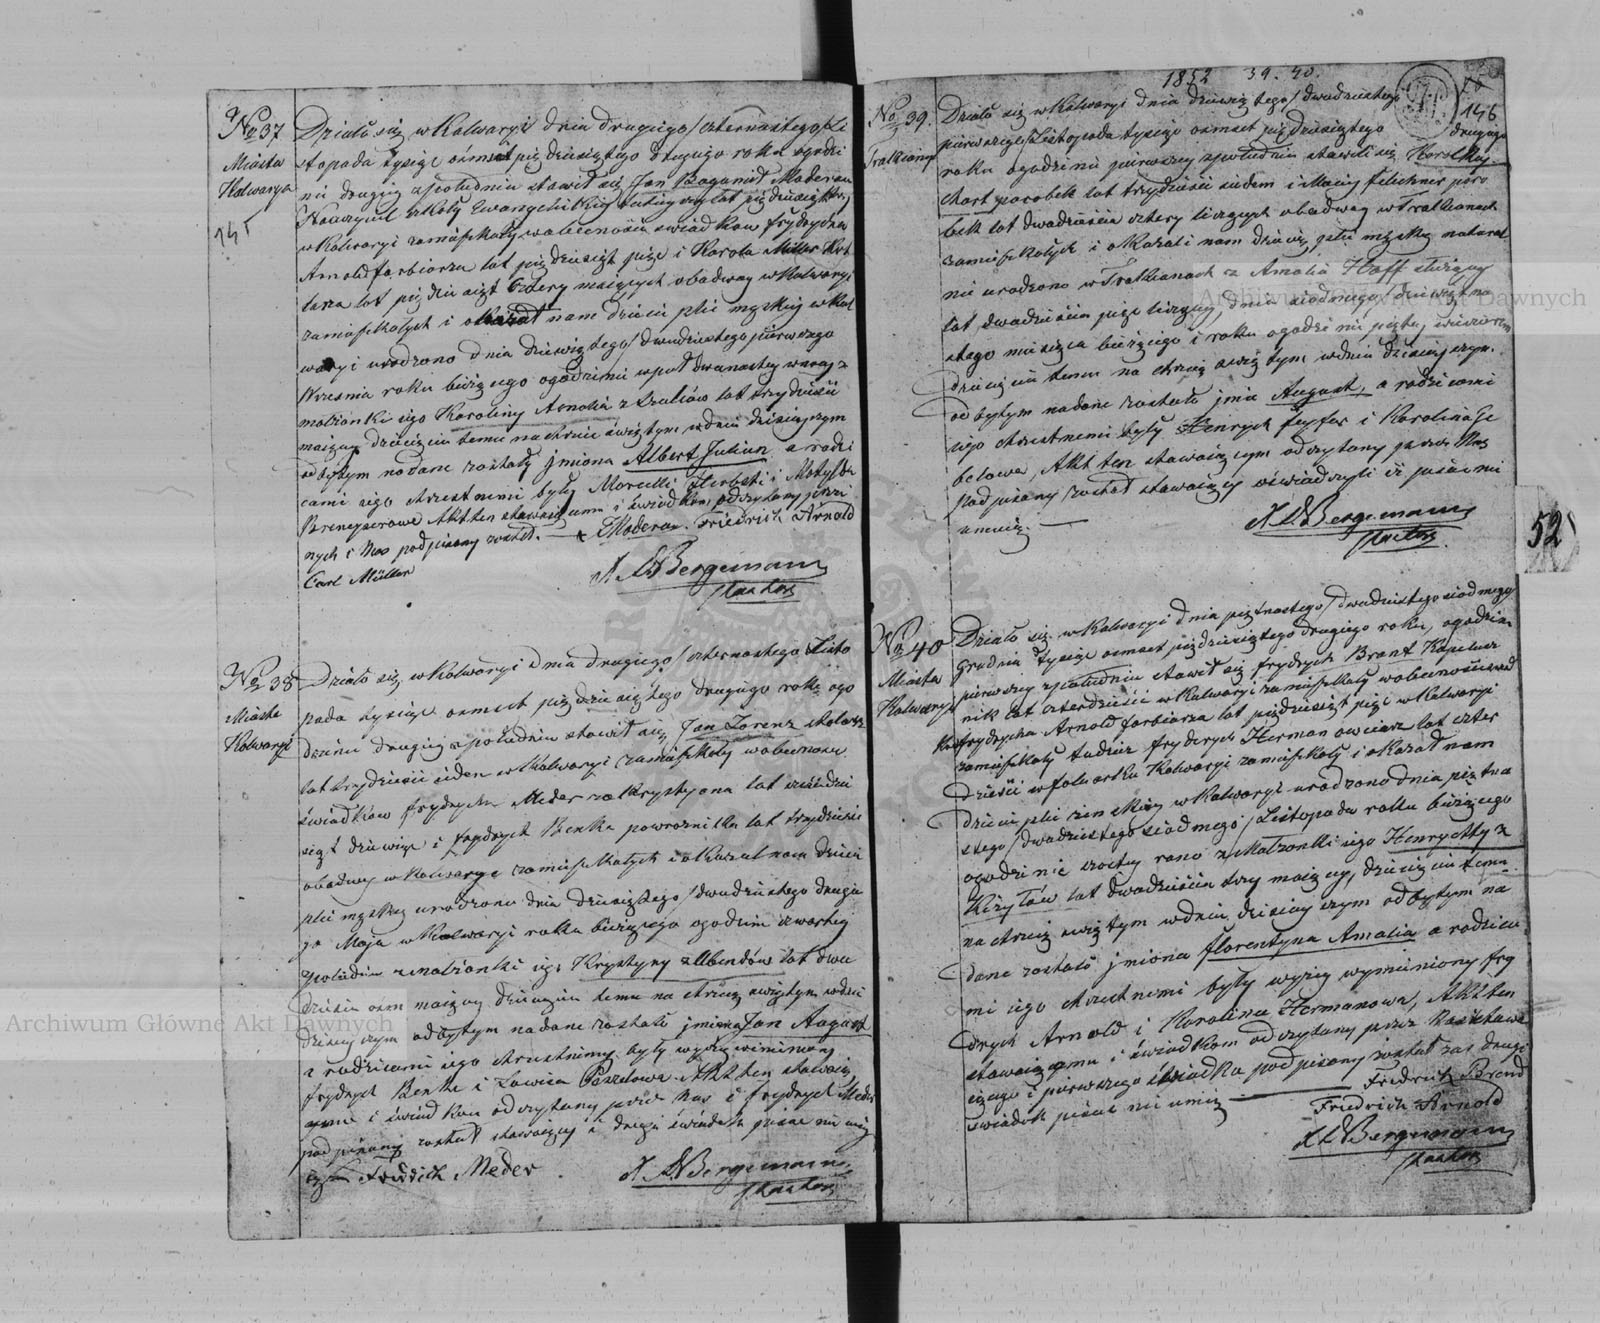 No 37
Miasta
Kalwarya
145
Działo się w Kalwaryi dnia drugiego/czternastego Li
stopada tysiąc ośmset piędziesiątego drugiego roku ogodzi
nie drugiey zpołudnia stawił się Jan Bogumił Maderau
Nauczyciel szkoły Ewangelickiey lat pięćdziesiąt
w Kalwaryi zamięszkały w obecności świadkow Frydrycha
Arnold farbiarza lat pięćdziesiąt pięć i Karola Müller
lat pięćdziesiąt cztery maiących obadway w Kalwaryi
zamięszkałych i okazał nam dziecie płci męzkiey w Kal
waryi urodzone dnia dziewiątego/dwudziestego pierwszego
Września roku bieżącego ogodzinie wpół dwunastey w nocy z
małżonki iego Karoliny Amalii z lat trzydzieści
maiącey dziecięciu temu na chrzcie świętym w dniu dzisieyszym
odbytym nadane zostały Jmiona Albert Julian a rodzi
cami iego chrzestnemi byli Marcelli Herbski i Matylda
Akt ten stawaiącemu i świadkom odczytany przez
nych i Nas podpisany został. — Maderau. Friedrich Arnold
Carl Müller
J L Bergemann
Pastor
No 38
Miasta
Kalwaryi
Działo się w Kalwaryi dnia drugiego/czternastego Listo
pada tysiąc osmset pięćdziesiątego drugiego roku ogo
dzinie drugiey zpołudnia stawił się Jan Lorenz stolarz
lat trzydzieści ieden w Kalwaryi zamięszkały w obecności
świadkow Frydrycha Meder zakrystyana lat sześćdzie
siąt dziewięć i Frydrych Benka powroznika lat trzydzieści
obadwa w Kalwaryi zamięszkałych i okazał nam dziecie
płci męzkiey urodzone dnia dziesiątego/dwudziestego drugie
go Maja w Kalwaryi roku bieżącego ogodzinie czwartey
zpołudnia z małżonki iego Krystyny z Abendów lat dwa
dzieścia osm maiącey dziecięciu temu na chrzcie świętym w dniu
dzisieyszym odbytym nadane zostało Jmiona Jan August
a rodzicami iego chrzestnimi byli wyżey wimieniony
Frydrych Benka i Lowiza Akt ten stawaią
cemu i świadkom odczytany przez Nas i Frydrych Meder
podpisany został stawaiący i drugi świadek pisać nie umie
ią — Friedrich Meder.
J L Bergemann
Pastor
1852 39. 40.
146
No 39.
Trakiany
Działo się w Kalwaryi dnia dziewiątego/dwudziestego
pierwszego Listopada tysiąc osmset pięćdziesiątego drugiego
roku ogodzinie pierwszey zpołudnia stawili się Karol
parobek lat trzydzieści siedem i Maciey Filichner paro
bek lat dwadzieścia cztery liczących obadway w Trakianach
zamięszkałych i okazali nam dziecię płci męzkiey natural
nie urodzone w Trakianach z Amalii Hoff służącey
lat dwadzieścia pięć liczącey, dnia siodmego/dziewiętna
stego miesiąca bieżącego i roku ogodzinie piątey wieczorem
dziecięciu temu na chrzcie świętym w dniu dzisieyszym
odbytym nadane zostało Jmie August, a rodzicami
iego chrzestnemi byli Henrych Feyfer i Karolina Ge
belowa, Akt ten stawaiącym odczytany przez Nas
podpisany został stawaiący oświadczyli iż pisać nie
umieią. —
J L Bergemann
Pastor
52
No 40
Miasta
Kalwaryi
Działo się w Kalwaryi dnia piętnastego/dwudziestego siodmego
Grudnia tysiąc osmset pięćdziesiątego drugiego roku, ogodzinie
pierwszey zpołudnia stawił się Frydrych Brant Kapelusz
nik lat czterdzieści w Kalwaryi zamięszkały w obecności świad
kow Frydrycha Arnold farbiarza lat pięćdziesiąt pięć w Kalwaryi
zamięszkały tudzież Frydrych Herman owczarz lat czter
dzieści w folwarku Kalwaryi zamięszkały i okazał nam
dziecie płci zenskiey w Kalwaryi urodzone dnia piętna
stego/dwadziestego siodmego/Listopada roku bieżącego
ogodzinie szostey rano z Małzonki iego Henryetty z
Kizyłów lat dwadzieścia trzy maiącey, dziecięciu temu
na chrzcie świętym w dniu dzisieyszym odbytym na
dane zostało Jmiona Florentyna Amalia a rodzica
mi iego chrzestnemi byli wyżey wymieniony Fry
drych Arnold i Karolina Hermanowa, Akt ten
stawaiącemu i świadkom odczytany przez Nas i stawa
iącego i pierwszego świadka podpisany został zaś drugi
świadek pisac nie umie — Friedrich Brand
Friedrich Arnold
J L Bergemann
Pastor
Archiwum Główne Akt Dawnych
Archiwum Główne Akt Dawnych